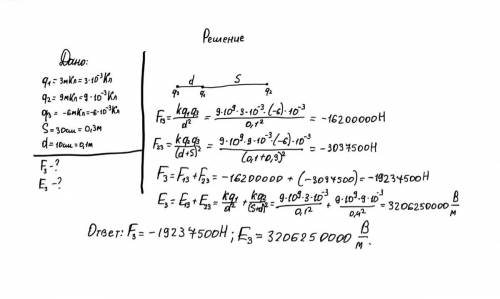 Решение
Дано:
q1 = 3мКл = 3·10⁻³Кл
q2 = 9мКл = 9·10⁻³Кл
q3 = -6мКл = -6·10⁻³Кл
S = 30см = 0,3м
d = 10см = 0,1м
F3 - ?
E3 - ?
d S
q3 q1 q2
F13 = kq1q3/d² = 9·10⁹·3·10⁻³·(-6)·10⁻³/0,1² = -16200000Н
F23 = kq2q3/(d+S)² = 9·10⁹·9·10⁻³·(-6)·10⁻³/(0,1+0,3)² = -3037500Н
F3 = F13 + F23 = -16200000 + (-3037500) = -19237500Н
E3 = E13 + E23 = kq1/d² + kq2/(S+d)² = 9·10⁹·3·10⁻³/0,1² + 9·10⁹·9·10⁻³/0,4² = 3206250000 В/м
Ответ: F3 = -19237500Н; E3 = 3206250000 В/м.